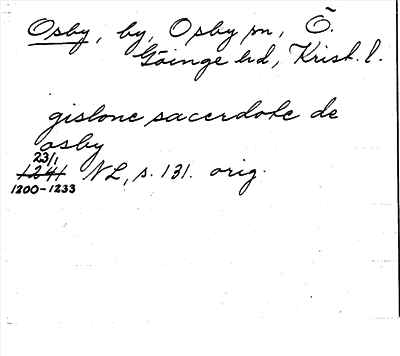 Osby, by, Osby sn, Ö.
Göinge hd, Krist. l.
gislone sacerdote de
osby
23/1
1241 NL, s. 131. orig.
1200-1233